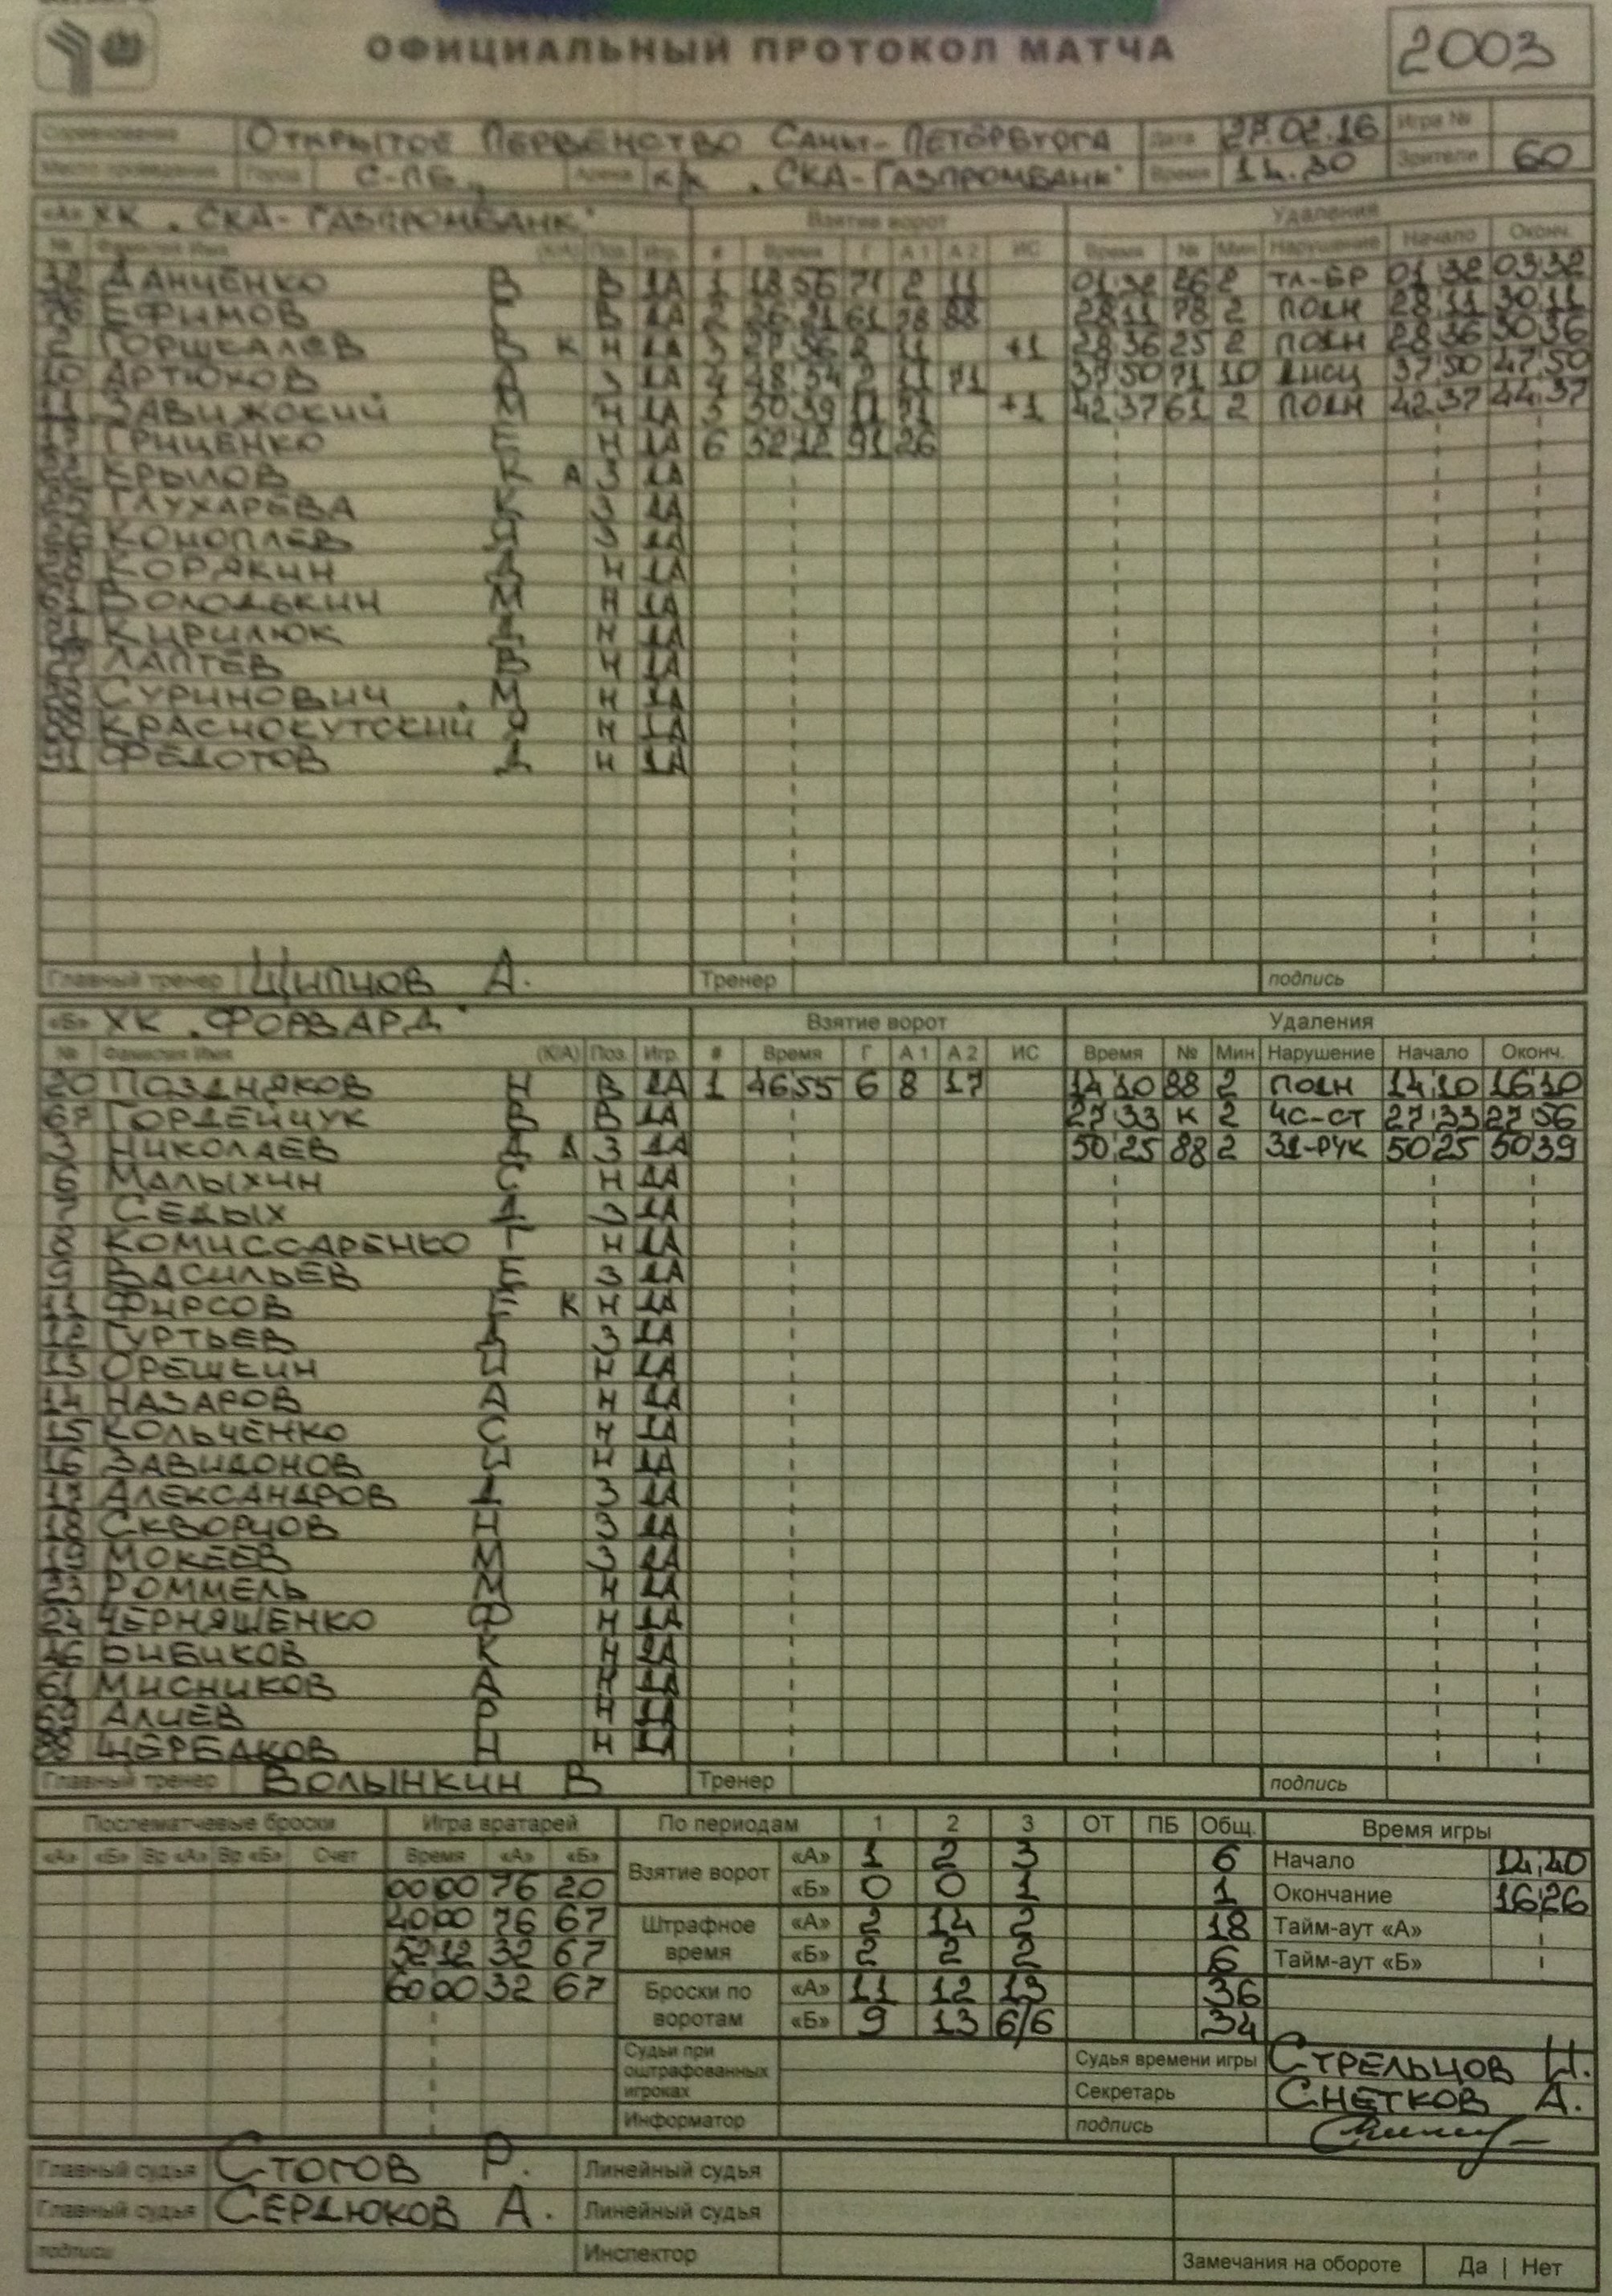 ОФИЦИАЛЬНЫЙ ПРОТОКОЛ МАТЧА
2003
Соревнование Открытое Первенство Санкт-Петербурга Дата 27.02.16 Игра №
Место проведения Город С-ПБ. Арена к/к "СКА-Газпромбанк" Время 14.30 Зрители 60
«А» ХК "СКА-Газпромбанк" Взятие ворот Удаления
№ Фамилия Имя (К/А) Поз. Игр. # Время Г А1 А2 ИС Время № Мин Нарушение Начало Оконч.
32 Данченко В В 1А 1 18 56 71 2 11 01 32 26 2 тл-бр 01 32 03 32
76 Ефимов В 1А 2 26 21 61 78 88 28 11 78 2 подн 28 11 30 11
2 Горшкалев В К Н 1А 3 27 56 2 11 +1 28 36 25 2 подн 28 36 30 36
10 Артюхов А З 1А 4 48 54 2 11 71 37 50 71 10 дисц 37 50 47 50
11 Завижский М Н 1А 5 50 39 11 71 +1 42 37 61 2 подн 42 37 44 37
17 Гриценко Е Н 1А 6 52 12 91 26
22 Крылов К А З 1А
25 Глухарева К З 1А
26 Коноплев Я З 1А
Корякин Д Н 1А
61 Володькин М Н 1А
71 Кирилюк Д Н 1А
Лаптев В Н 1А
Суринович М Н 1А
88 Краснокутский Я Н 1А
91 Федотов Д Н 1А
Главный тренер Щипцов А. Тренер подпись
«Б» ХК "Форвард" Взятие ворот Удаления
№ Фамилия Имя (К/А) Поз. Игр. # Время Г А1 А2 ИС Время № Мин Нарушение Начало Оконч.
20 Поздняков Н В 1А 1 46 55 6 8 17 14 10 88 2 подн 14 10 16 10
67 Гордейчук В В 1А 27 33 К 2 чс-ст 27 33 27 56
3 Николаев Д А З 1А 50 25 88 2 зд-рук 50 25 50 39
6 Малыхин С Н 1А
7 Седых Д З 1А
8 Комиссаренко Г Н 1А
9 Васильев Е З 1А
11 Фирсов Е К Н 1А
12 Гуртьев З 1А
13 Орешкин И Н 1А
14 Назаров А Н 1А
15 Кольченко С Н 1А
16 Завидонов И Н 1А
17 Александров Д З 1А
18 Скворцов Н З 1А
19 Мокеев М З 1А
23 Роммель М Н 1А
24 Черняшенко Ф Н 1А
46 Бибиков К Н 1А
61 Мисников А Н 1А
69 Алиев Р Н
88 Щербаков Н Н
Главный тренер Волынкин В Тренер подпись
Послематчевые броски Игра вратарей По периодам 1 2 3 ОТ ПБ Общ. Время игры
«А» «Б» Вр «А» Вр «Б» Счет Время «А» «Б» Взятие ворот «А» 1 2 3 6 Начало 14,40
00 00 76 20 «Б» 0 0 1 1 Окончание 16 26
40 00 76 67 Штрафное время «А» 2 14 2 18 Тайм-аут «А»
52 12 32 67 «Б» 2 2 2 6 Тайм-аут «Б»
60 00 32 67 Броски по воротам «А» 11 12 13 36
«Б» 9 13 6/6 34
Судьи при оштрафованных игроках Судья времени игры Стрельцов И.
Секретарь Снетков А.
Информатор подпись
Главный судья Стогов Р. Линейный судья
Главный судья Сердюков А. Линейный судья
подписи Инспектор Замечания на обороте Да | Нет